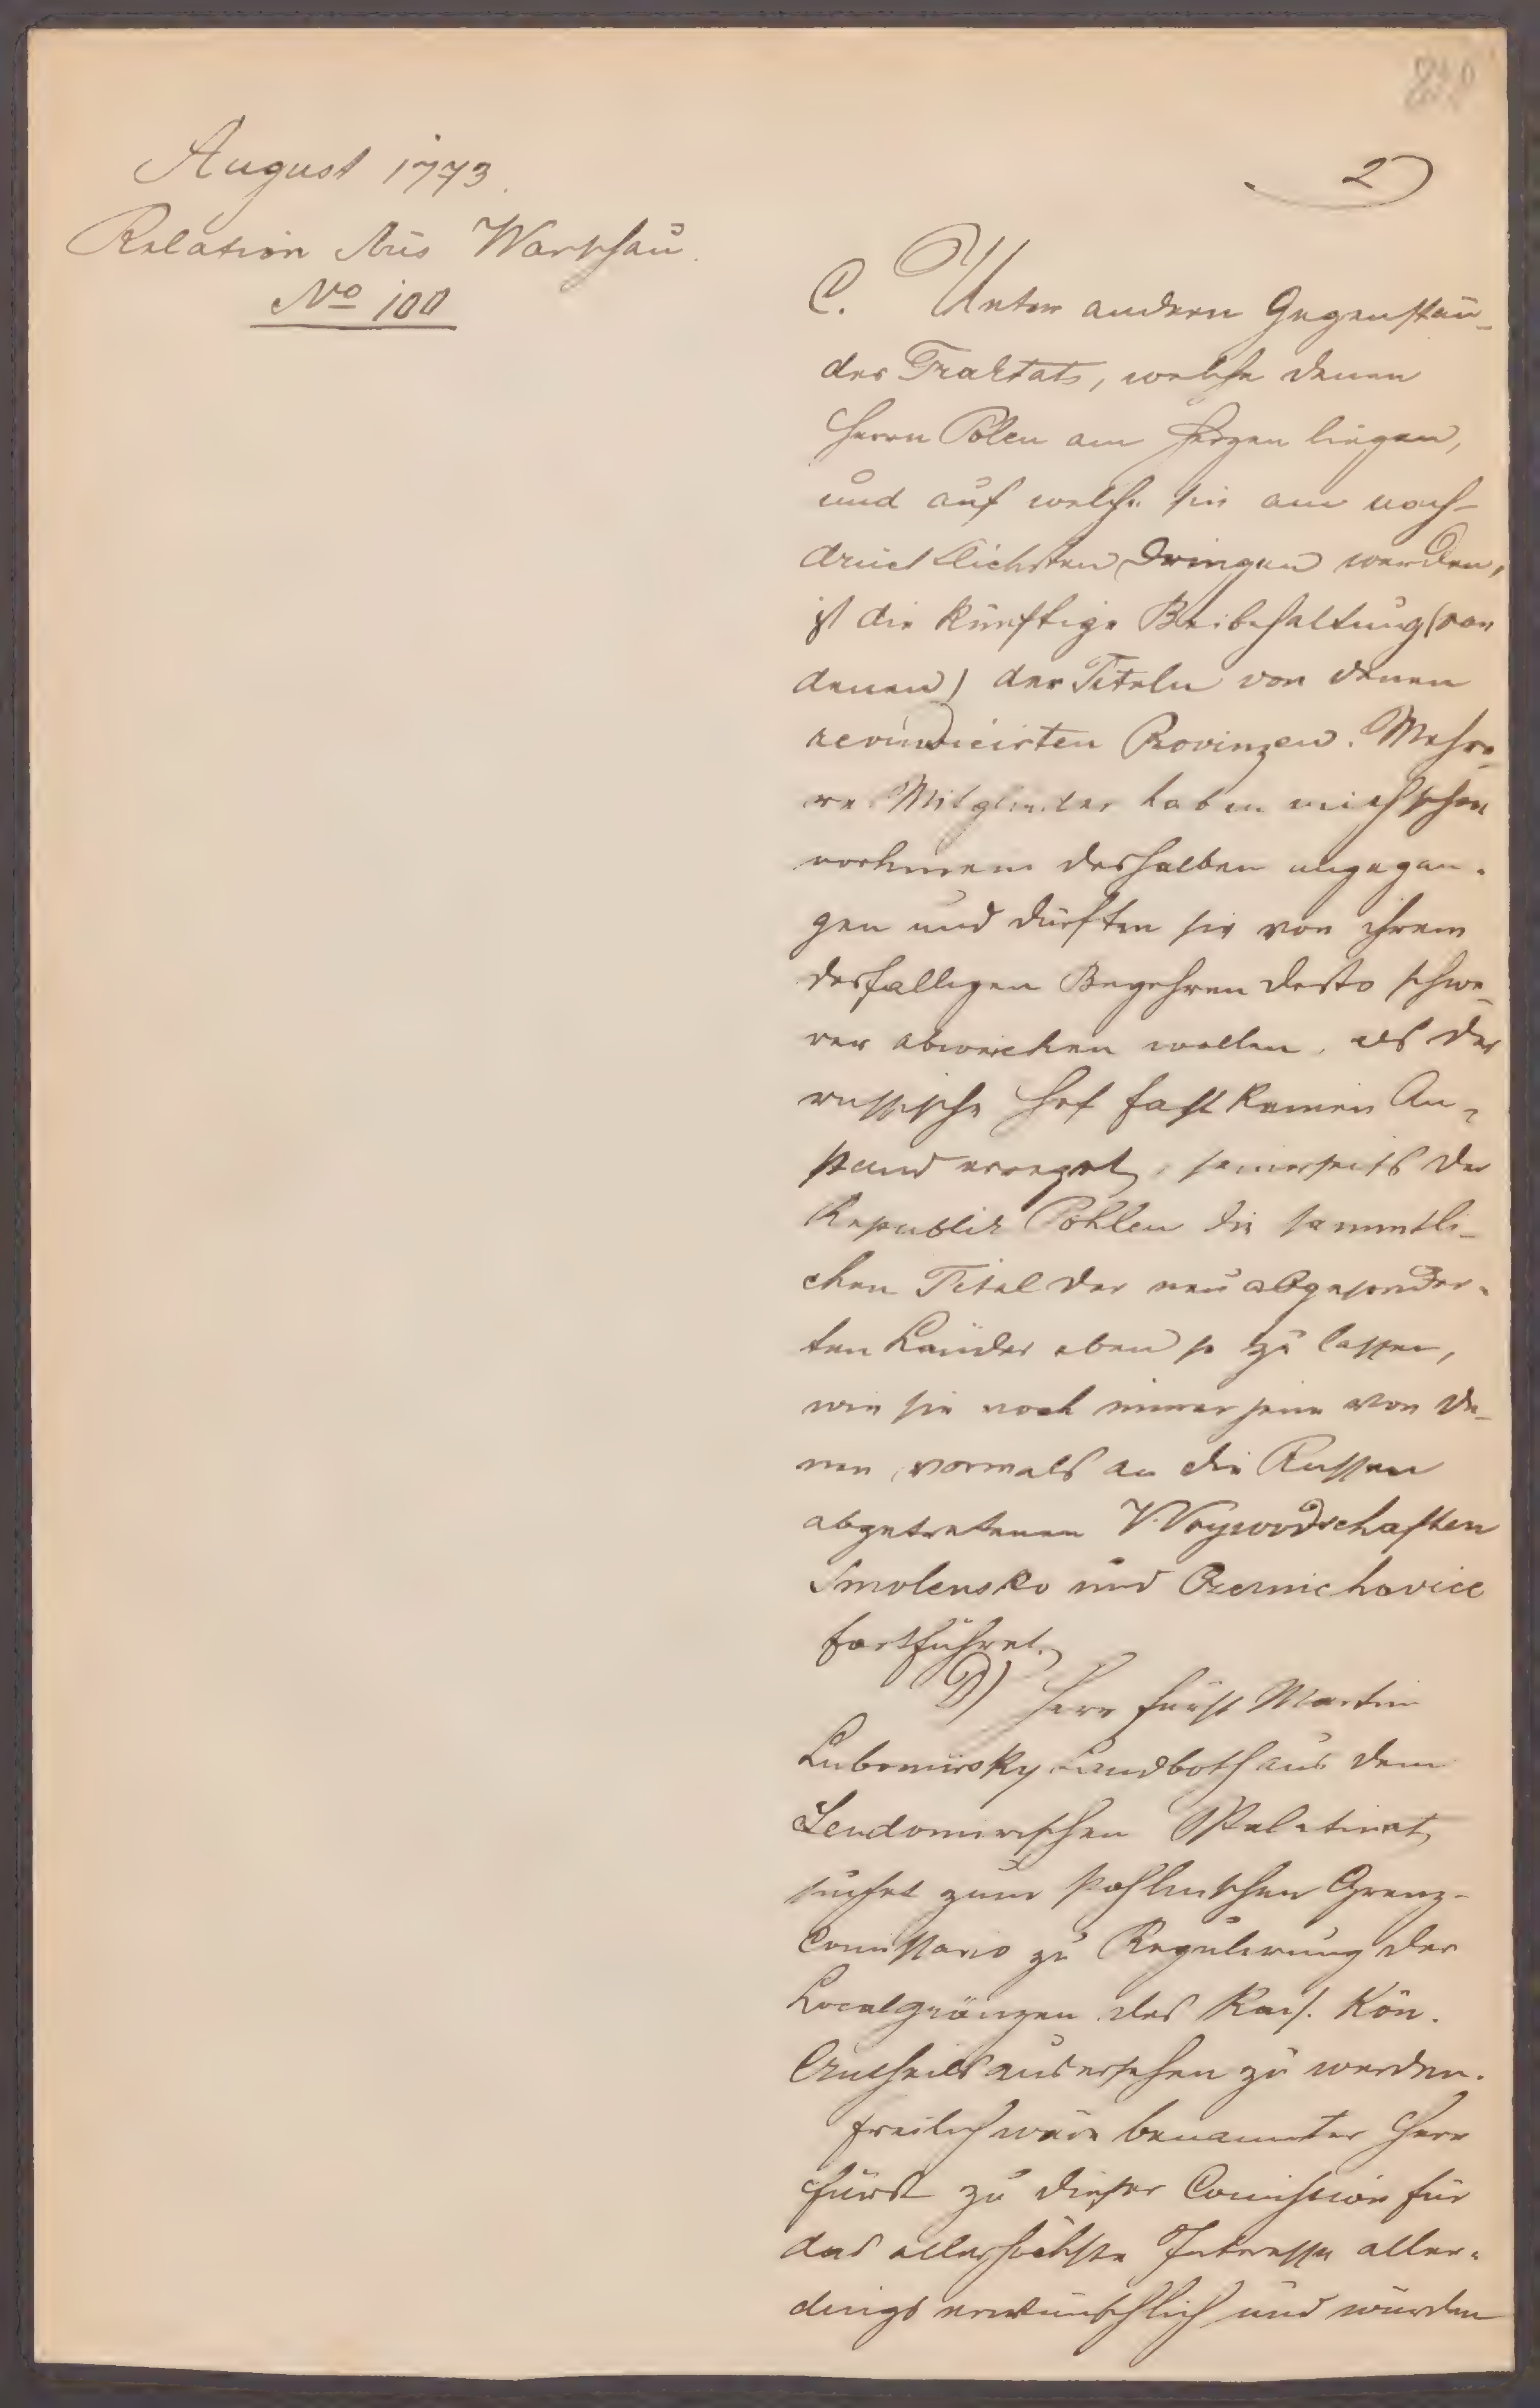 August 1773.
Relation Aus Warschau.
No 100
2)
C. Unter andern Gegenstän-
des Traktats, welche denen
Herrn Polen am Herzen liegen,
und auf welche sie am nach-
drücklichsten dringen werden,
ist die künftige Beibehaltung (von
denen) der Titeln von denen
revindicirten Provinzen. Mehre-
re Mitglieder haben mich schon
deshalben angegan-
gen und dürften sie von ihrem
desfalligen Begehren desto schwe-
rer abweichen wollen, als der
russische Hof fast keinen An-
stand erreget, seinerseits der
Republik Pohlen die sammtli-
chen Titel der neu abgesonder-
ten Länder eben so zu lassen,
wie sie noch immer jene von de-
nen vormals an die Russen
abgetretenen Woywodschaften
Smolensko und Czernichovice
fortführet.
D) Herr Fürst Martin
Lubomirsky Landboth aus dem
Sendomirischen Palatinat,
suchet zum pohlnischen Grenz-
Comissario zu Regulirung der
Localgränzen des Kais. Kön.
Antheils ausersehen zu werden.
Freilich wäre benannter Herr
Fürst zu dieser Comission für
das allerhöchste Interesse aller-
dings erwünschlich und würden